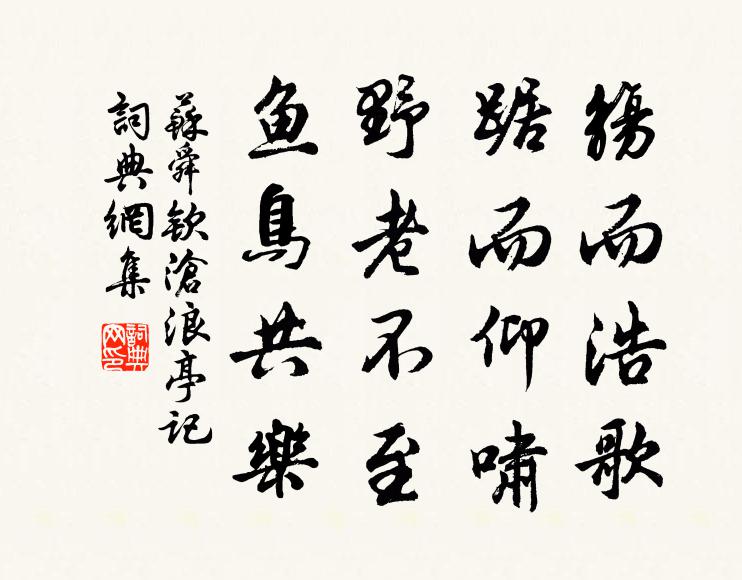 觴而浩歌
踞而仰嘯
野老不至
鱼鳥共樂
蘇舜欽滄浪亭記
詞典網集
詞典网印